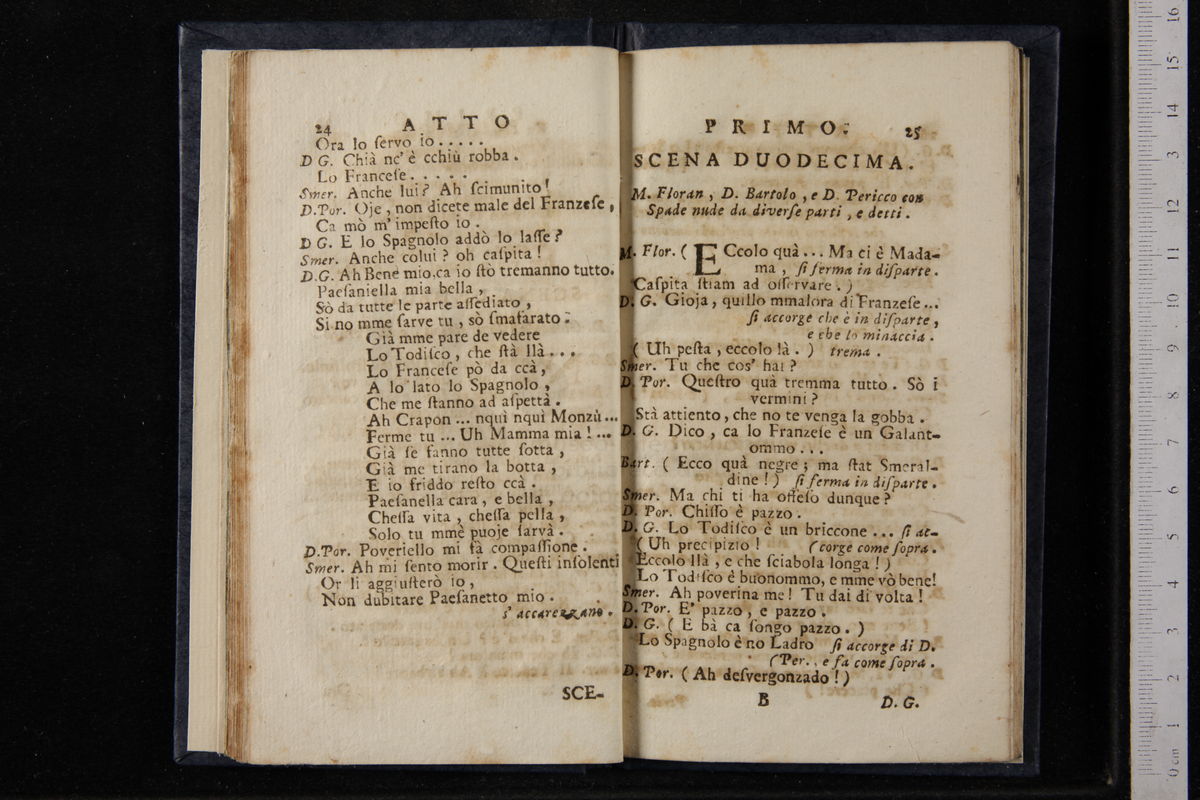 24 ATTO
Ora lo ſervo io.....
D G. Chià nc' è cchiù robba.
Lo Franceſe.....
Smer. Anche lui? Ah ſcimunito!
D.Por. Oje, non dicete male del Franzeſe,
Ca mò m' impeſto io.
D G. E lo Spagnolo addò lo laſſe?
Smer. Anche colui? oh caſpita!
D.G. Ah Bene mio, ca io ſtò tremanno tutto.
Paeſaniella mia bella,
Sò da tutte le parte aſſediato,
Si no mme ſarve tu, sò ſmafarato:
Già mme pare de vedere
Lo Todiſco, che ſtà llà...
Lo Franceſe pò da ccà,
A lo lato lo Spagnolo,
Che me ſtanno ad aſpettà.
Ah Crapon... nquì nquì Monzù...
Ferme tu... Uh Mamma mia!...
Già ſe fanno tutte ſotta,
Già me tirano la botta,
E io friddo reſto ccà.
Paeſanella cara, e bella,
Cheſſa vita, cheſſa pella,
Solo tu mme puoje ſarvà.
D.Por. Poveriello mi fà compaſſione.
Smer. Ah mi ſento morir. Queſti inſolenti
Or li aggiuſterò io,
Non dubitare Paeſanetto mio.
s' accarezzano.
SCE-
PRIMO. 25
SCENA DUODECIMA.
M. Floran, D. Bartolo, e D. Pericco con
Spade nude da diverſe parti, e detti.
M. Flor. ( ECcolo quà... Ma ci è Mada-
ma, ſi ferma in diſparte.
Caſpita ſtiam ad oſſervare.)
D. G. Gioja, quillo mmalora di Franzeſe...
ſi accorge che è in diſparte,
e che lo minaccia.
( Uh peſta, eccolo là. ) trema.
Smer. Tu che cos' hai?
D. Por. Queſtro quà tremma tutto. Sò i
vermini?
Stà attiento, che no te venga la gobba.
D. G. Dico, ca lo Franzeſe è un Galant-
ommo...
Bart. ( Ecco quà negre; ma ſtat Smeral-
dine!) ſi ferma in diſparte.
Smer. Ma chi ti ha offeſo dunque?
D. Por. Chiſſo è pazzo.
D. G. Lo Todiſco è un briccone... ſi ac-
( Uh precipizio! (corge come ſopra.
Eccolo llà, e che ſciabola longa!)
Lo Todiſco è buonommo, e mme vò bene!
Smer. Ah poverina me! Tu dai di volta!
D. Por. E' pazzo, e pazzo.
D. G. ( E bà ca ſongo pazzo. )
Lo Spagnolo è no Ladro ſi accorge di D.
(Per., e fa come ſopra.
D. Por. ( Ah deſvergonzado!)
B D. G.